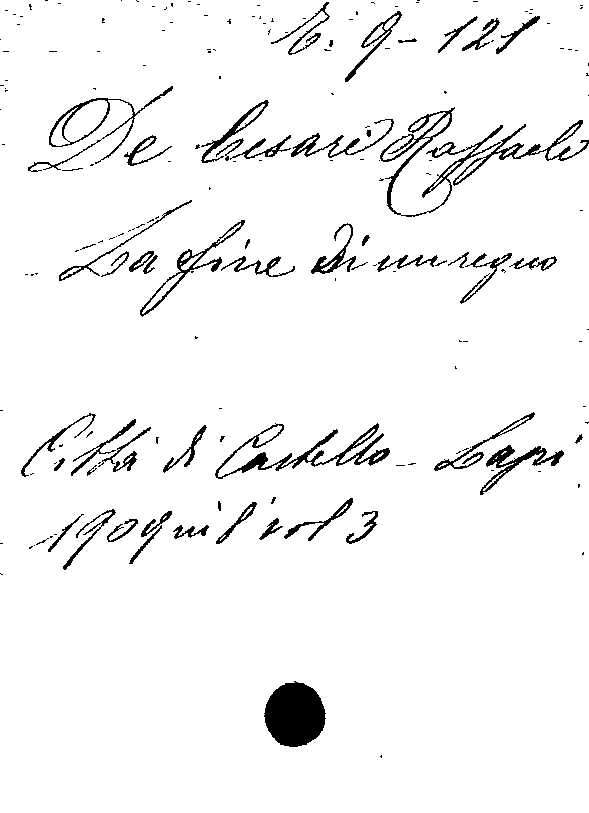 E. 9 - 121
De Cesare Raffaele
La fine di un regno
Città di Castello - Lapi
1909 in 8° vol 3